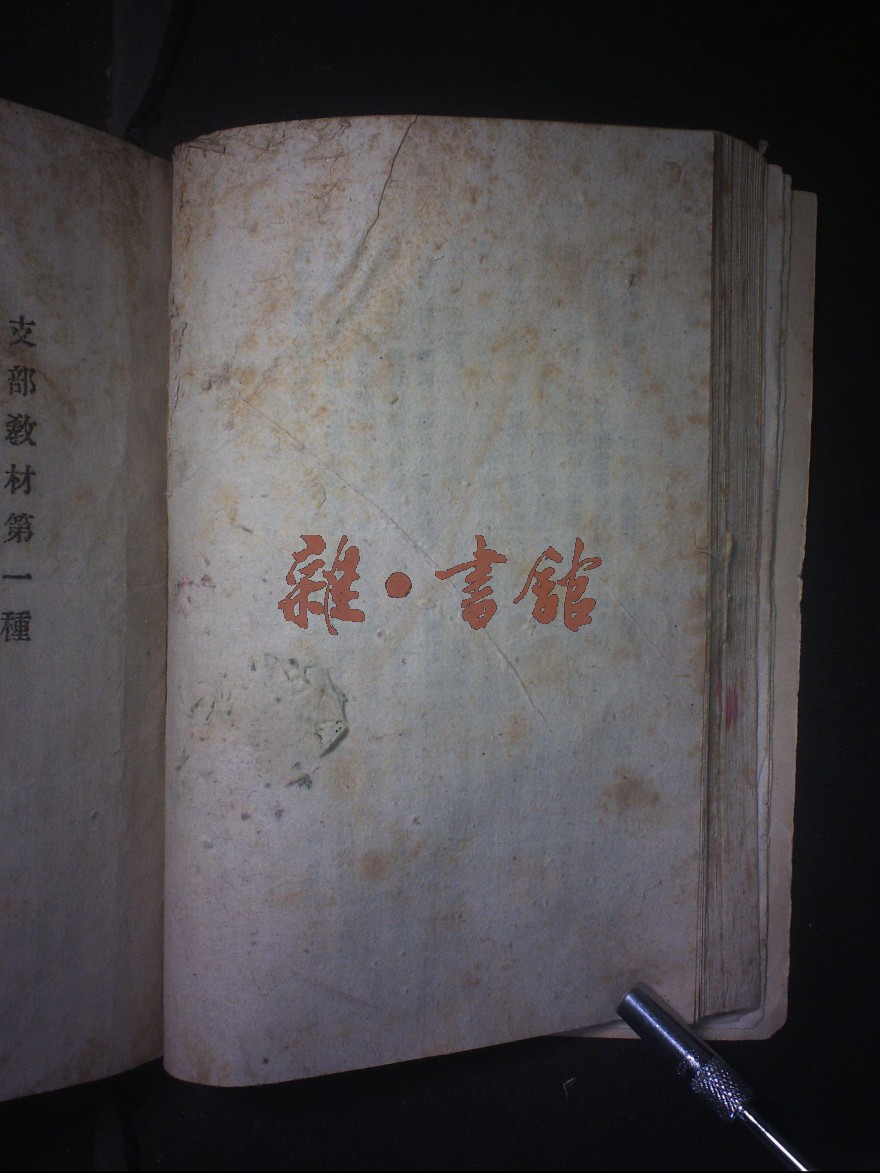 支部教材第一種
雜·書館